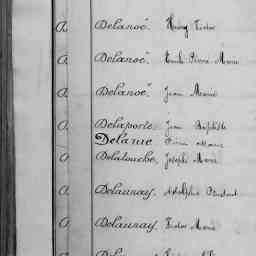 A Delanoë. Fidor
A Delanoë. Emile Pierre Marie
A Delanoë. Jean Marie
A Delaporte. Jean Baptiste
Delarue Pierre Marie
A Delatouche. Joseph Marie
A Delaunay. Adolphe
A Delaunay. Marie